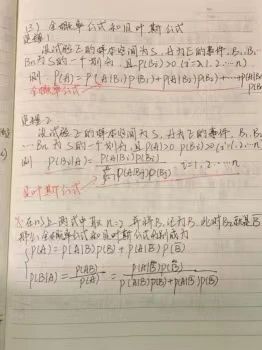 (3) 全概率公式和贝叶斯公式
定理1
设试验E的样本空间为S, A为E的事件, B₁, B₂,
Bn为S的一个划分, 且P(Bi)>0 (i=1,2,…n)
则 P(A)=P(A|B₁)P(B₁)+P(A|B₂)P(B₂)+…+P(A|
全概率公式
定理2
设试验E的样本空间为S, A为E的事件, B₁,
Bn为S的一个划分, 且P(A)>0 P(Bi)>0 (i=1,2,…n)
则 P(Bi|A)= P(A|Bi)P(Bi) / Σ P(A|Bj)P(Bj) i=1,2,…n
贝叶斯公式
在以上两式中取n=2, 并将B₁记为B, 此时B₂就是B̅
那么全概率公式和贝叶斯公式分别成为
P(A)=P(A|B)P(B)+P(A|B̅)P(B̅)
P(B|A)= P(AB)/P(A) = P(A|B)P(B) / P(A|B)P(B)+P(A|B̅)P(B̅)